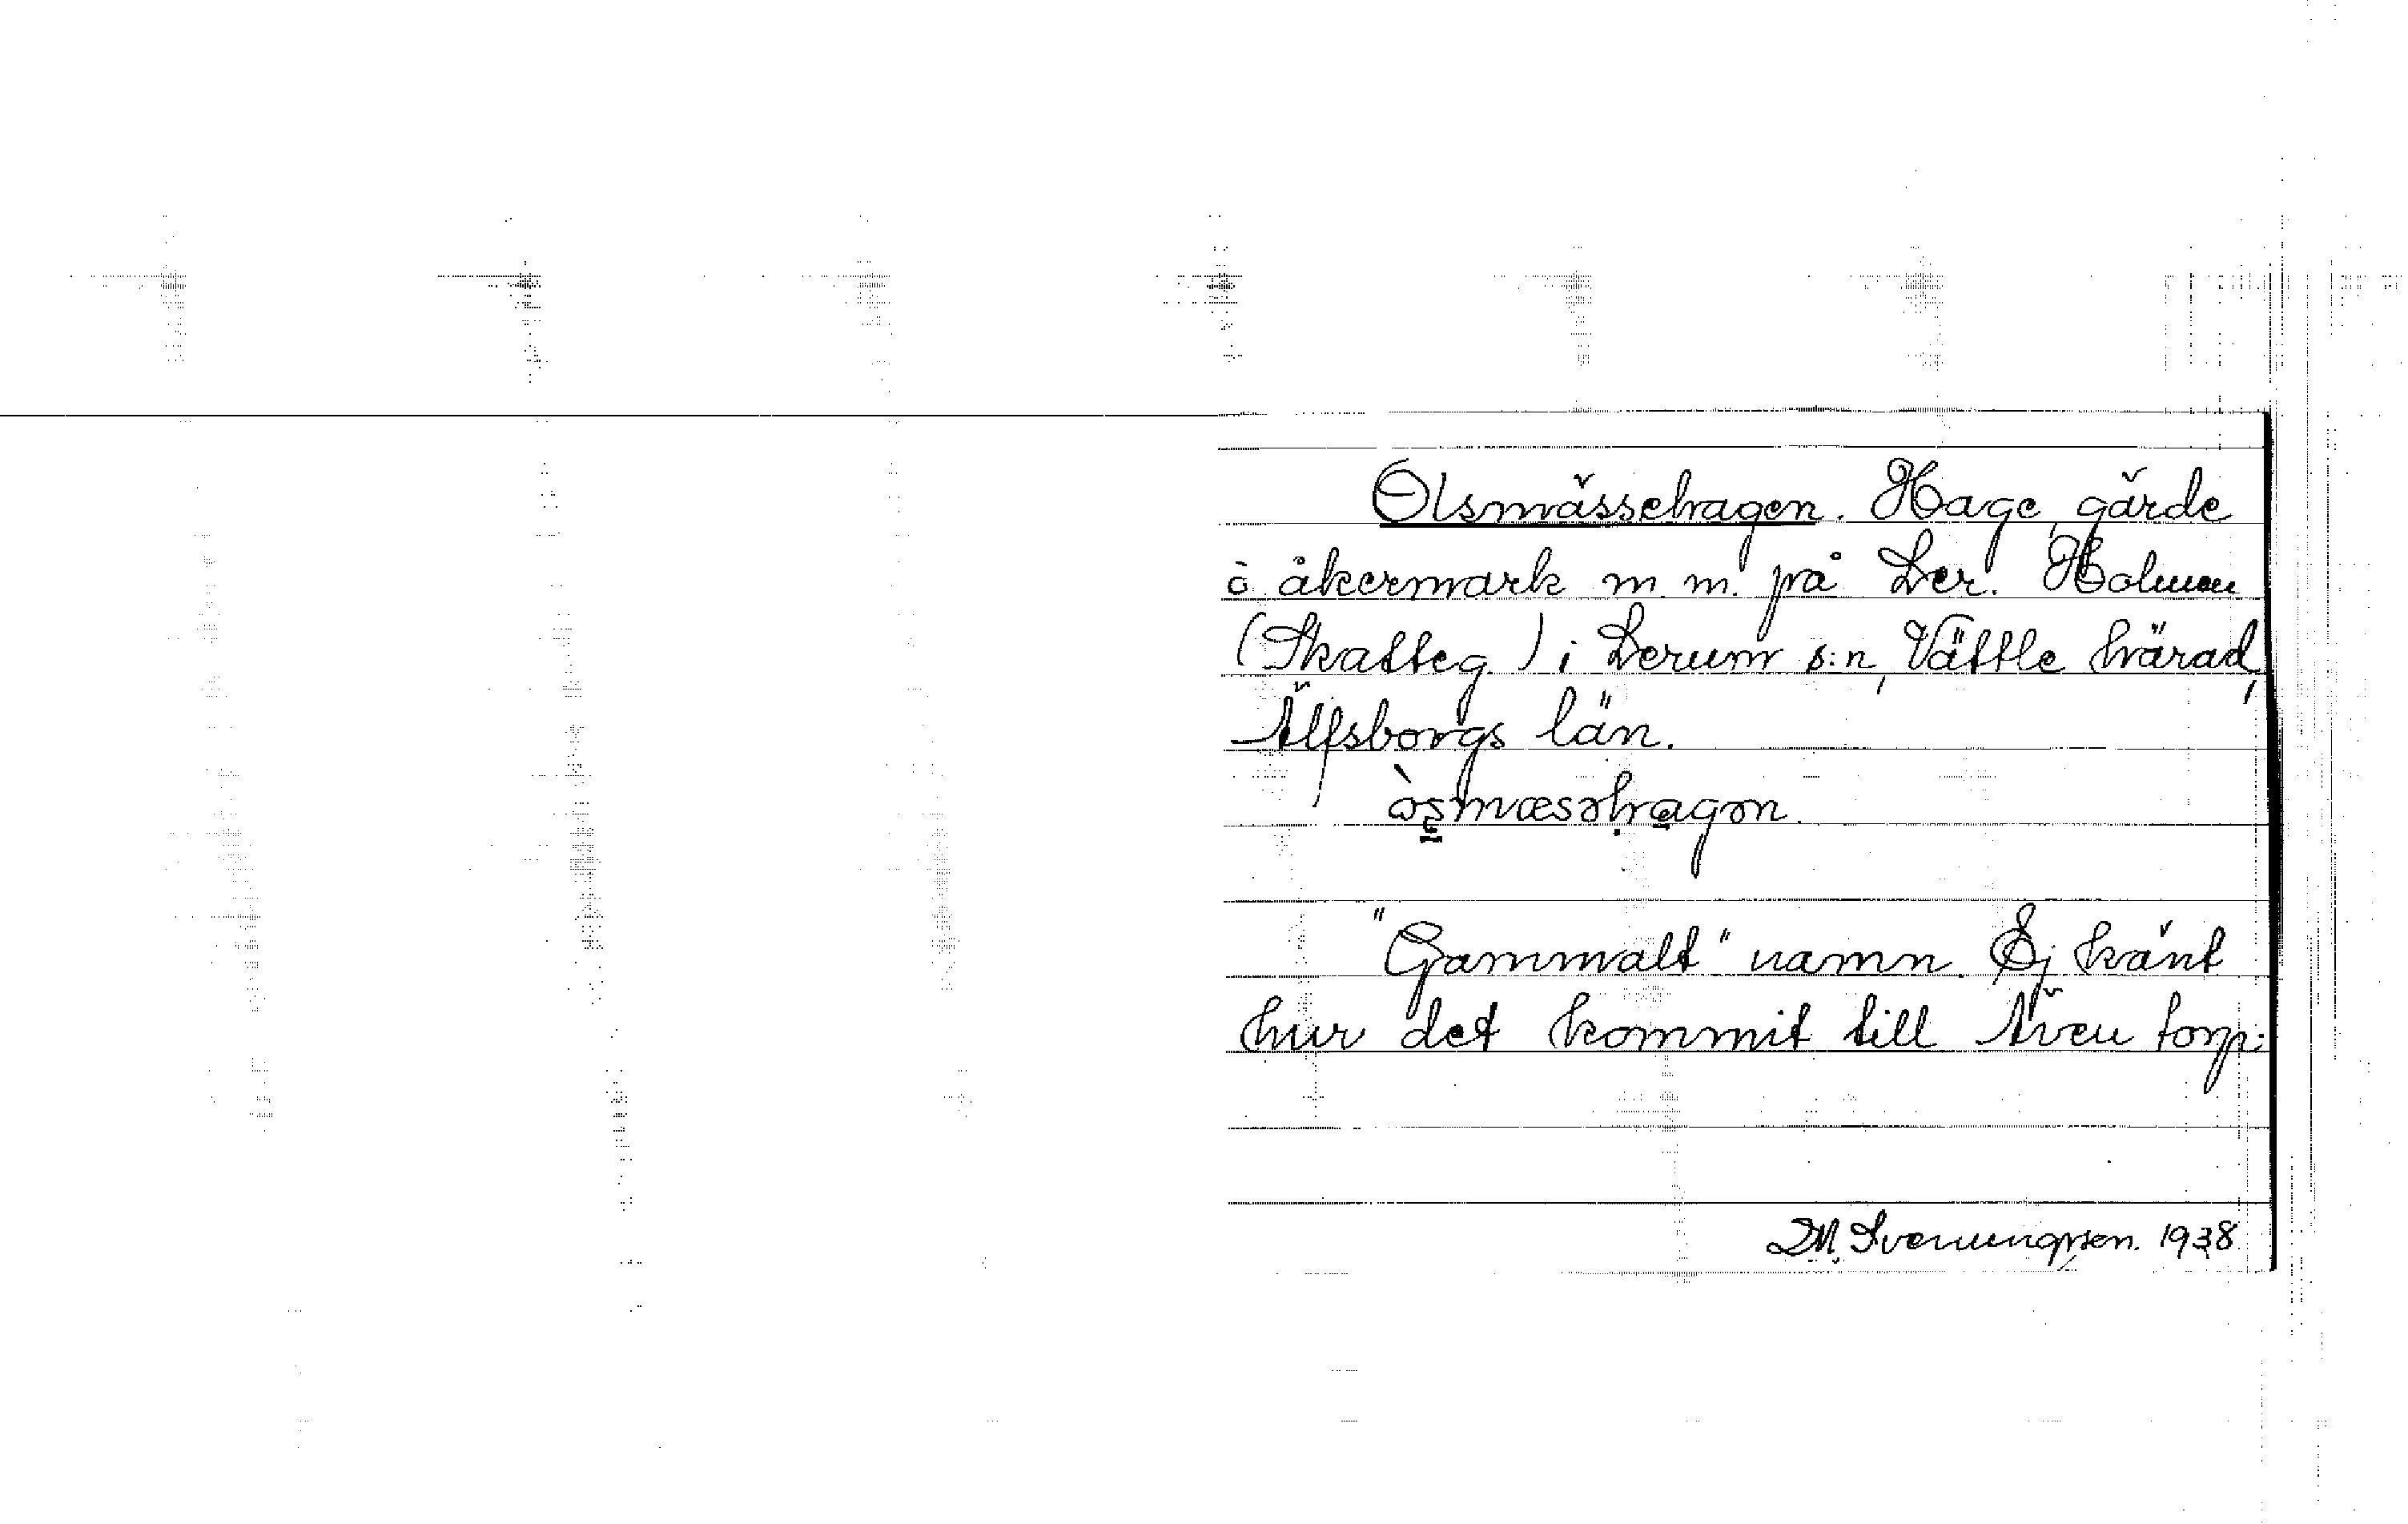 Olsmässehagen. Hage, gärde
o. åkermark m. m. på Ler. Holmen
(Skatteg.) i Lerum s:n, Vättle härad,
Älfsborgs län.
òsmæsəhagən.
"Gammalt" namn. Ej känt
hur det kommit till. Även torp.
D.M. Svenungsson. 1938